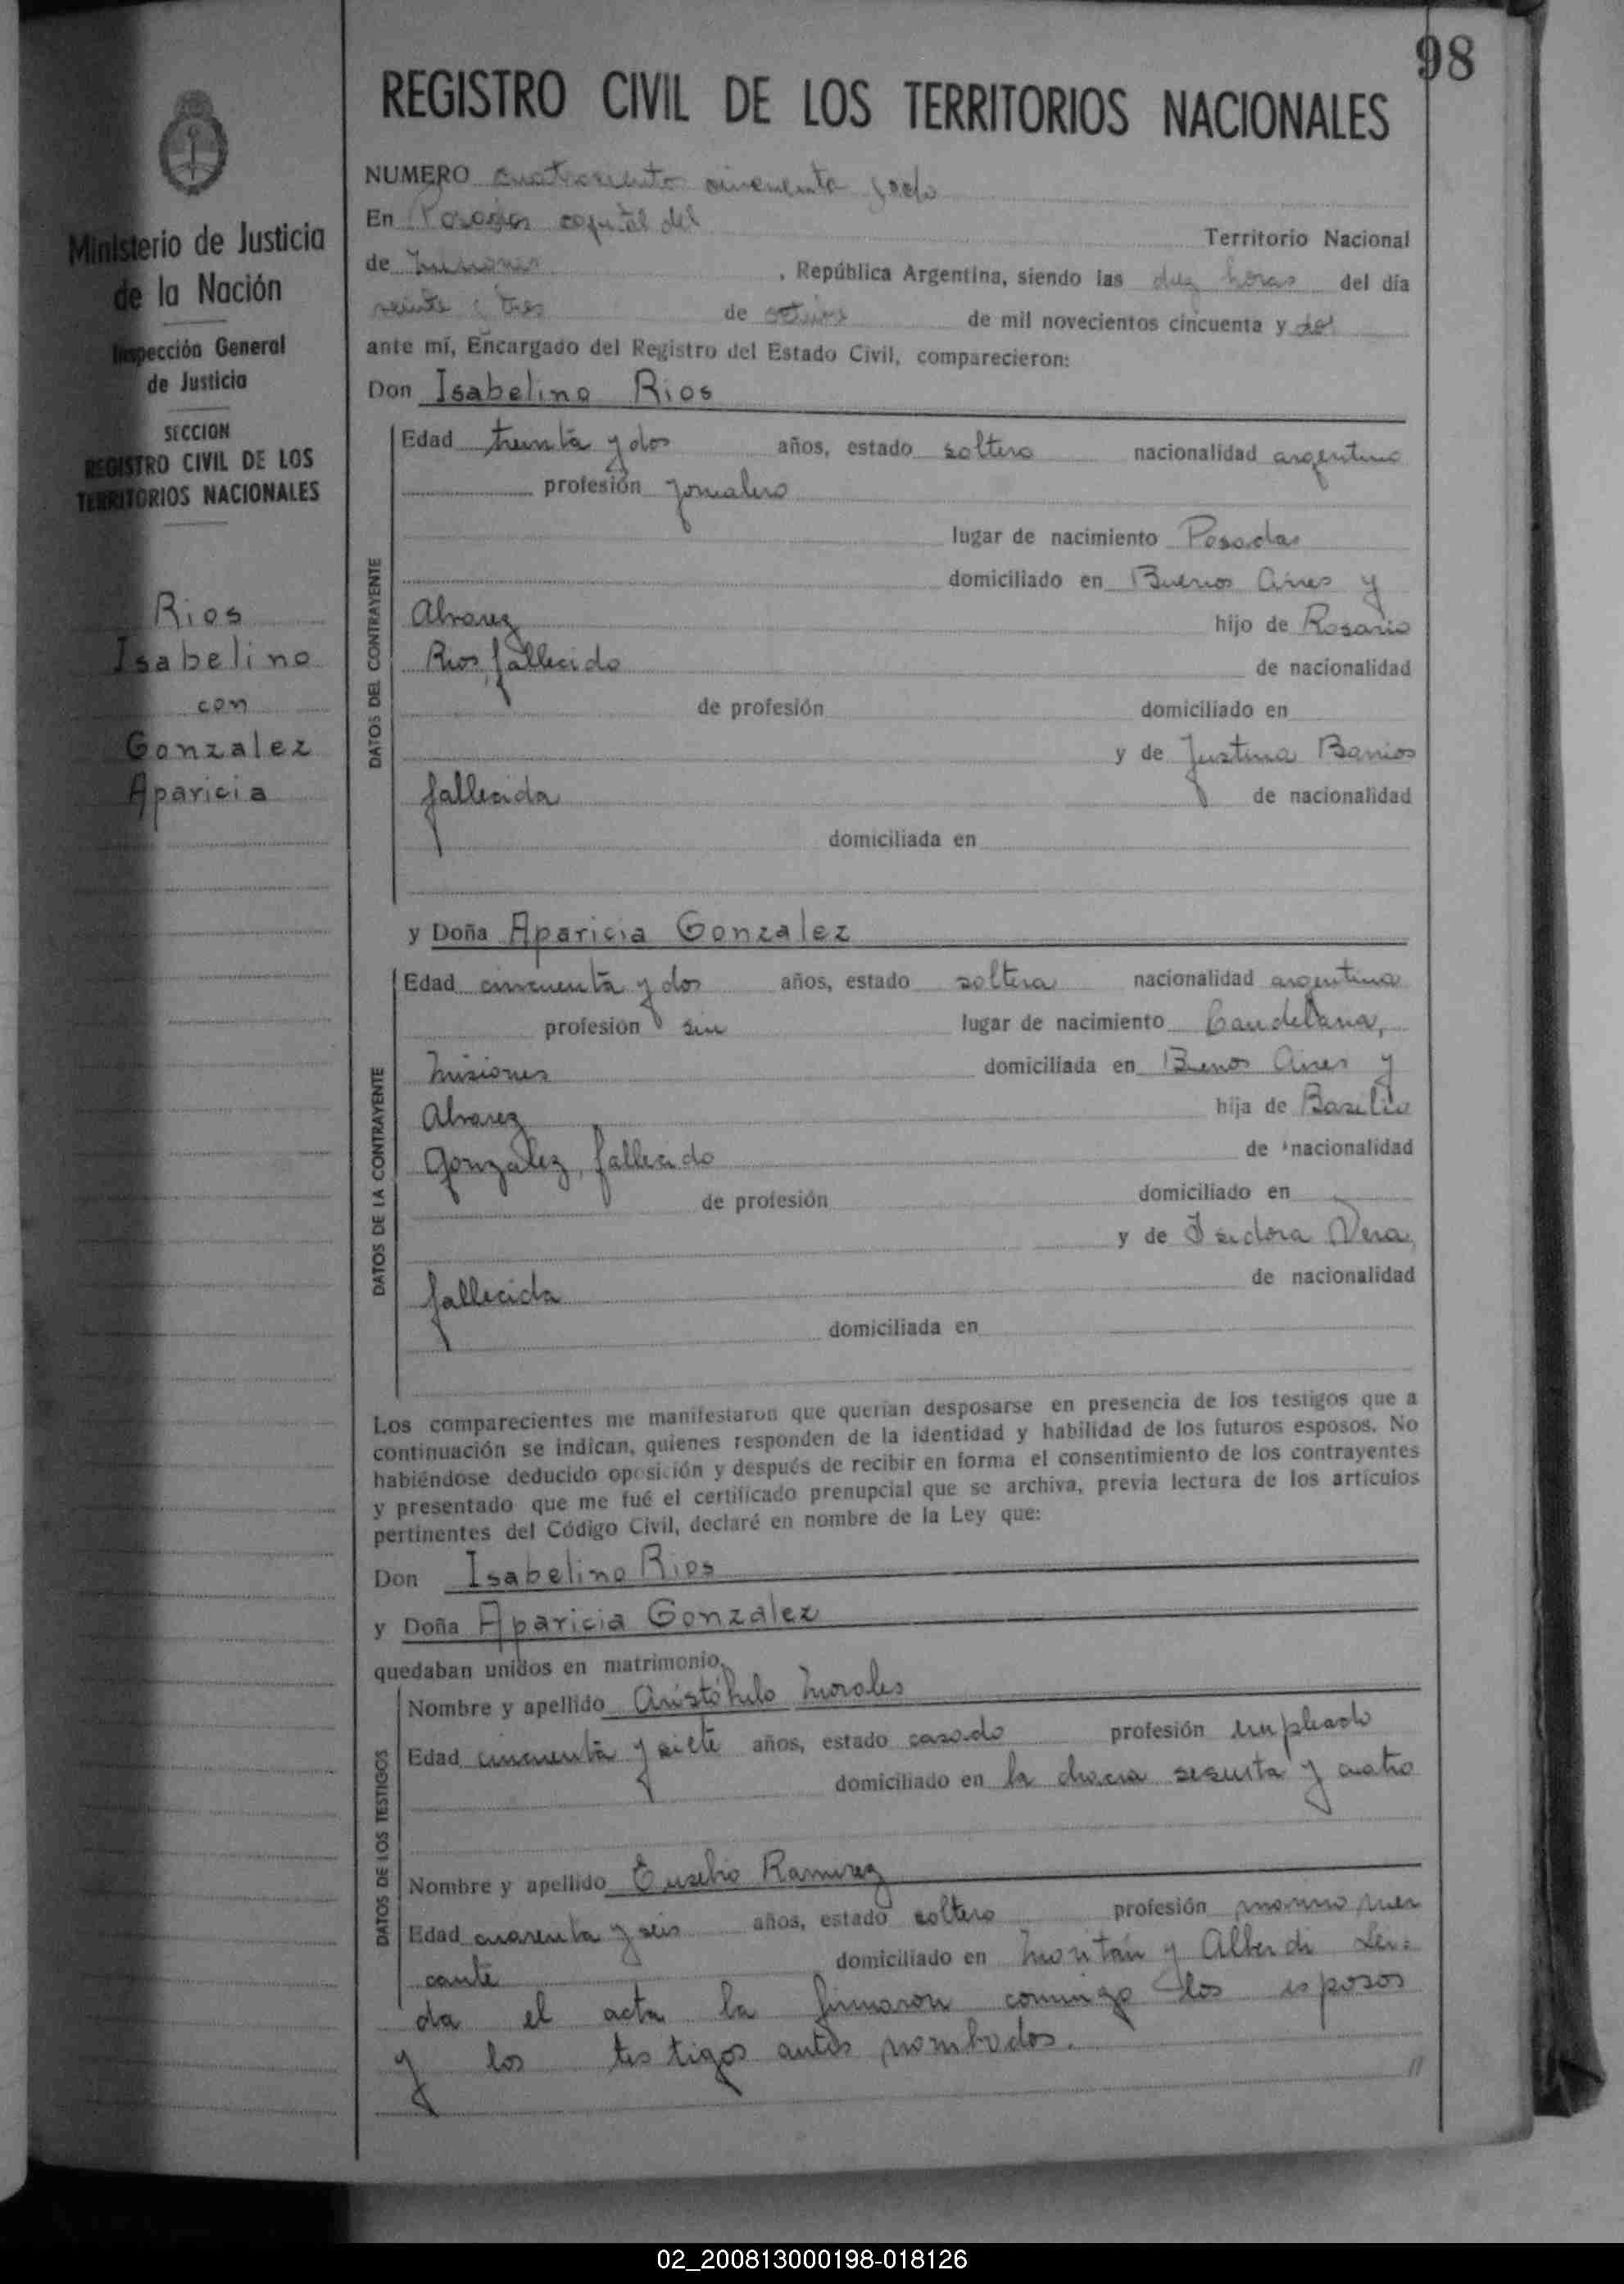 98
REGISTRO CIVIL DE LOS TERRITORIOS NACIONALES
Ministerio de Justicia
de la Nación
Inspección General
de Justicia
SECCION
REGISTRO CIVIL DE LOS
TERRITORIOS NACIONALES
Rios
Isabelino
con
Gonzalez
Aparicia
NUMERO cuatrociento cincuenta
En Posadas capital del
Territorio Nacional
de Misiones , República Argentina, siendo las diez horas del día
veinte y tres de de mil novecientos cincuenta y dos
ante mí, Encargado del Registro del Estado Civil, comparecieron:
Don Isabelino Rios
DATOS DEL CONTRAYENTE
Edad treinta y dos años, estado soltero nacionalidad argentino
profesión jornalero
lugar de nacimiento Posadas
domiciliado en Buenos Aires y
Alvarez hijo de Rosario
Rios, fallecido de nacionalidad
de profesión domiciliado en
y de Justina Barrios
fallecida de nacionalidad
domiciliada en
y Doña Aparicia Gonzalez
DATOS DE LA CONTRAYENTE
Edad cincuenta y dos años, estado soltera nacionalidad argentina
profesión sin lugar de nacimiento Candelaria,
Misiones domiciliada en Buenos Aires y
Alvarez hija de Basilio
Gonzalez, fallecido de nacionalidad
de profesión domiciliado en
y de Isidora Vera,
fallecida de nacionalidad
domiciliada en
Los comparecientes me manifestaron que querían desposarse en presencia de los testigos que a
continuación se indican, quienes responden de la identidad y habilidad de los futuros esposos. No
habiéndose deducido oposición y después de recibir en forma el consentimiento de los contrayentes
y presentado que me fué el certificado prenupcial que se archiva, previa lectura de los artículos
pertinentes del Código Civil, declaré en nombre de la Ley que:
Don Isabelino Rios
y Doña Aparicia Gonzalez
quedaban unidos en matrimonio.
DATOS DE LOS TESTIGOS
Nombre y apellido Aristóbulo Morales
Edad cincuenta y siete años, estado casado profesión empleado
domiciliado en la chacra sesenta y cuatro
Nombre y apellido Eusebio Ramirez
Edad cuarenta y seis años, estado soltero profesión marino mer
cante domiciliado en y Alberdi Lei-
da el acta la firmaron conmigo los esposos
y los testigos antes nombados.
"
02_200813000198-018126